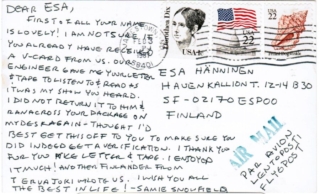 DEAR ESA,
FIRST OF ALL YOUR NAME
IS LOVELY! I AM NOT SURE IF
YOU ALREADY HAVE RECEIVED
A V-CARD FROM US. OUR
ENGINEER GAVE ME YOUR LETTER
& TAPE TO LISTEN TO & READ AS
IT WAS MY SHOW YOU HEARD.
I DID NOT RETURN IT TO HIM &
RAN ACROSS YOUR PACKAGE ON
MY DESK AGAIN - THOUGHT I'D
BEST GET THIS OFF TO YOU TO MAKE SURE YOU
DID INDEED GET A VERIFICATION. I THANK YOU
FOR YOUR NICE LETTER & TAPE. I ENJOYED
IT MUCH! ANOTHER FINLANDER FROM
WROTE US. I WISH YOU ALL
THE BEST IN LIFE! - SAMIE
USA
USA 22
22 USA
ESA HÄNNINEN
HAUENKALLIONT. 12-14 B30
SF-02170 ESPOO
FINLAND
AIR MAIL
PAR AVION
FLYGPOST